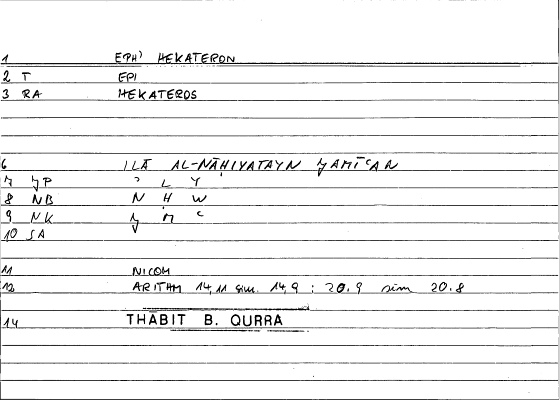 1 EPH' HEKATERON
2 T EPI
3 RA HEKATEROS
6 ILĀ AL-NĀḤIYATAYN ǦAMĪʿAN
7 ʾ L Y
8 NB N Ḥ W
9 NK Ǧ M ʿ
10 SA
11 NICOM
12 ARITHM 14,11 sim. 14,9 : 20.9 sim 20.8
14 THĀBIT B. QURRA